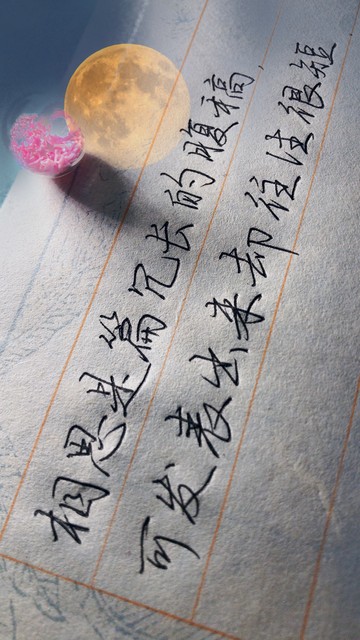 相思是篇冗长的腹稿,
可发表出来却往往很短